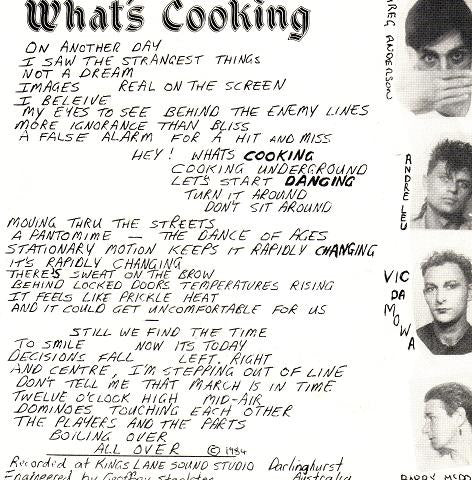 What's Cooking
ON ANOTHER DAY
I SAW THE STRANGEST THINGS
NOT A DREAM
IMAGES REAL ON THE SCREEN
I BELEIVE
MY EYES TO SEE BEHIND THE ENEMY LINES
MORE IGNORANCE THAN BLISS
A FALSE ALARM FOR A HIT AND MISS
HEY! WHATS COOKING
COOKING UNDERGROUND
LET'S START DANGING
TURN IT AROUND
DON'T SIT AROUND
MOVING THRU THE STREETS
A PANTOMIME — THE DANCE OF AGES
STATIONARY MOTION KEEPS IT RAPIDLY CHANGING
IT'S RAPIDLY CHANGING
THERE'S SWEAT ON THE BROW
BEHIND LOCKED DOORS TEMPERATURES RISING
IT FEELS LIKE PRICKLE HEAT
AND IT COULD GET UNCOMFORTABLE FOR US
STILL WE FIND THE TIME
TO SMILE NOW ITS TODAY
DECISIONS FALL LEFT. RIGHT
AND CENTRE, I'M STEPPING OUT OF LINE
DON'T TELL ME THAT MARCH IS IN TIME
TWELVE O'CLOCK HIGH MID-AIR
DOMINOES TOUCHING EACH OTHER
THE PLAYERS AND THE PARTS
BOILING OVER
ALL OVER © 1984
Recorded at KINGS LANE SOUND STUDIO Darlinghurst
Engineered by Geoffrey Australia
GREG ANDERSON
ANDRE LEU
VIC DA MOWA
BARRY